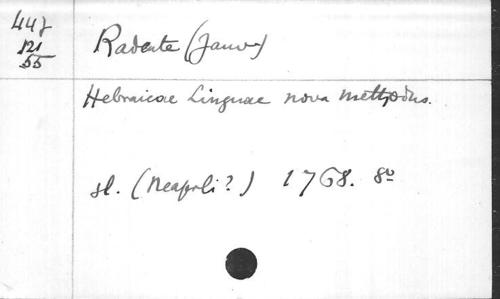 447
121
55
Radente (Janu)
Hebraicae Linguae nova methodus.
sl. (Neapoli?) 1768. 8º